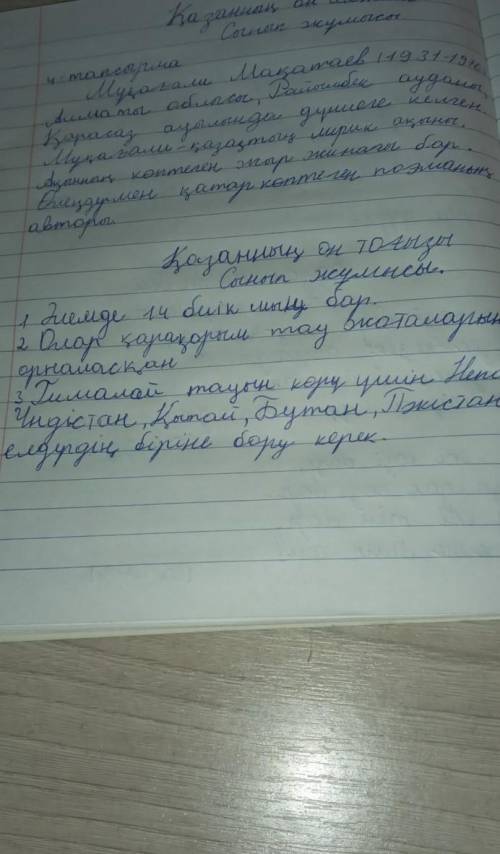 Қазанның он
Сынып жұмысы
4-тапсырма
Мұқағали Мақатаев (1931-19
Алматы облысы, Райымбек ауданы,
Қарасаз ауылында дүниеге келген.
Мұқағали-қазақтың лирик ақыны.
Ақынның көптеген жыр жинағы бар.
Өлеңдермен қатар көптеген поэманың
авторы.
Қазанның он тоғызы
Сынып жұмысы.
1 Әлемде 14 биік шың бар.
2 Олар қарақорым тау жоталарын
орналасқан
3 Гималай тауын көру үшін Непа
Үндістан, Қытай, Бутан, Пәкістан
елдердің біріне бару керек.